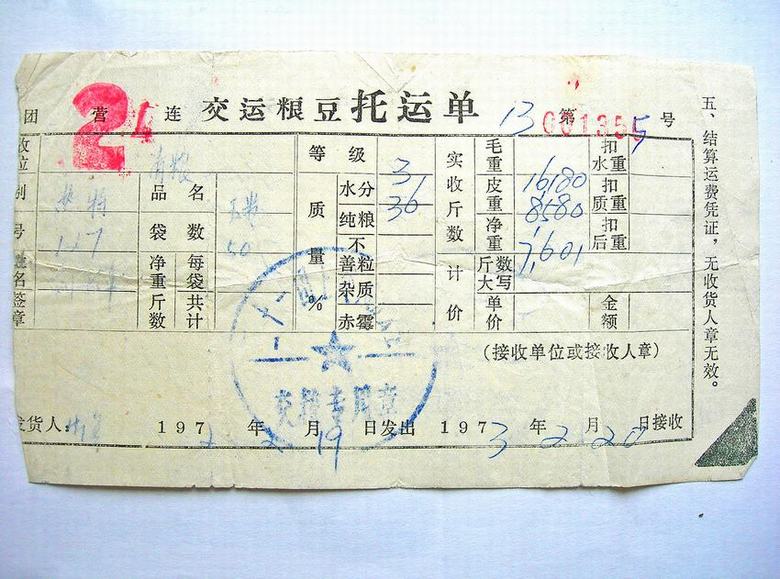 团 营 连 交运粮豆托运单 13 第 001355 号
收位 清粮 等级 3 实收斤数 毛重 16,180 扣水重
别 热特 品名 玉米 质量% 水分 36 皮重 8580 扣质重
号 117 袋数 50 纯粮 净重 7,601 扣后重
名 净重斤数 每袋共计 不善粒 计价 斤数大写
签章 杂质 单价 金额
赤霉
(接收单位或接收人章)
发货人: 197 年 月 19 日发出 1973 年 2 月 20 日接收
五、结算运费凭证，无收货人章无效。
24
交粮专用章